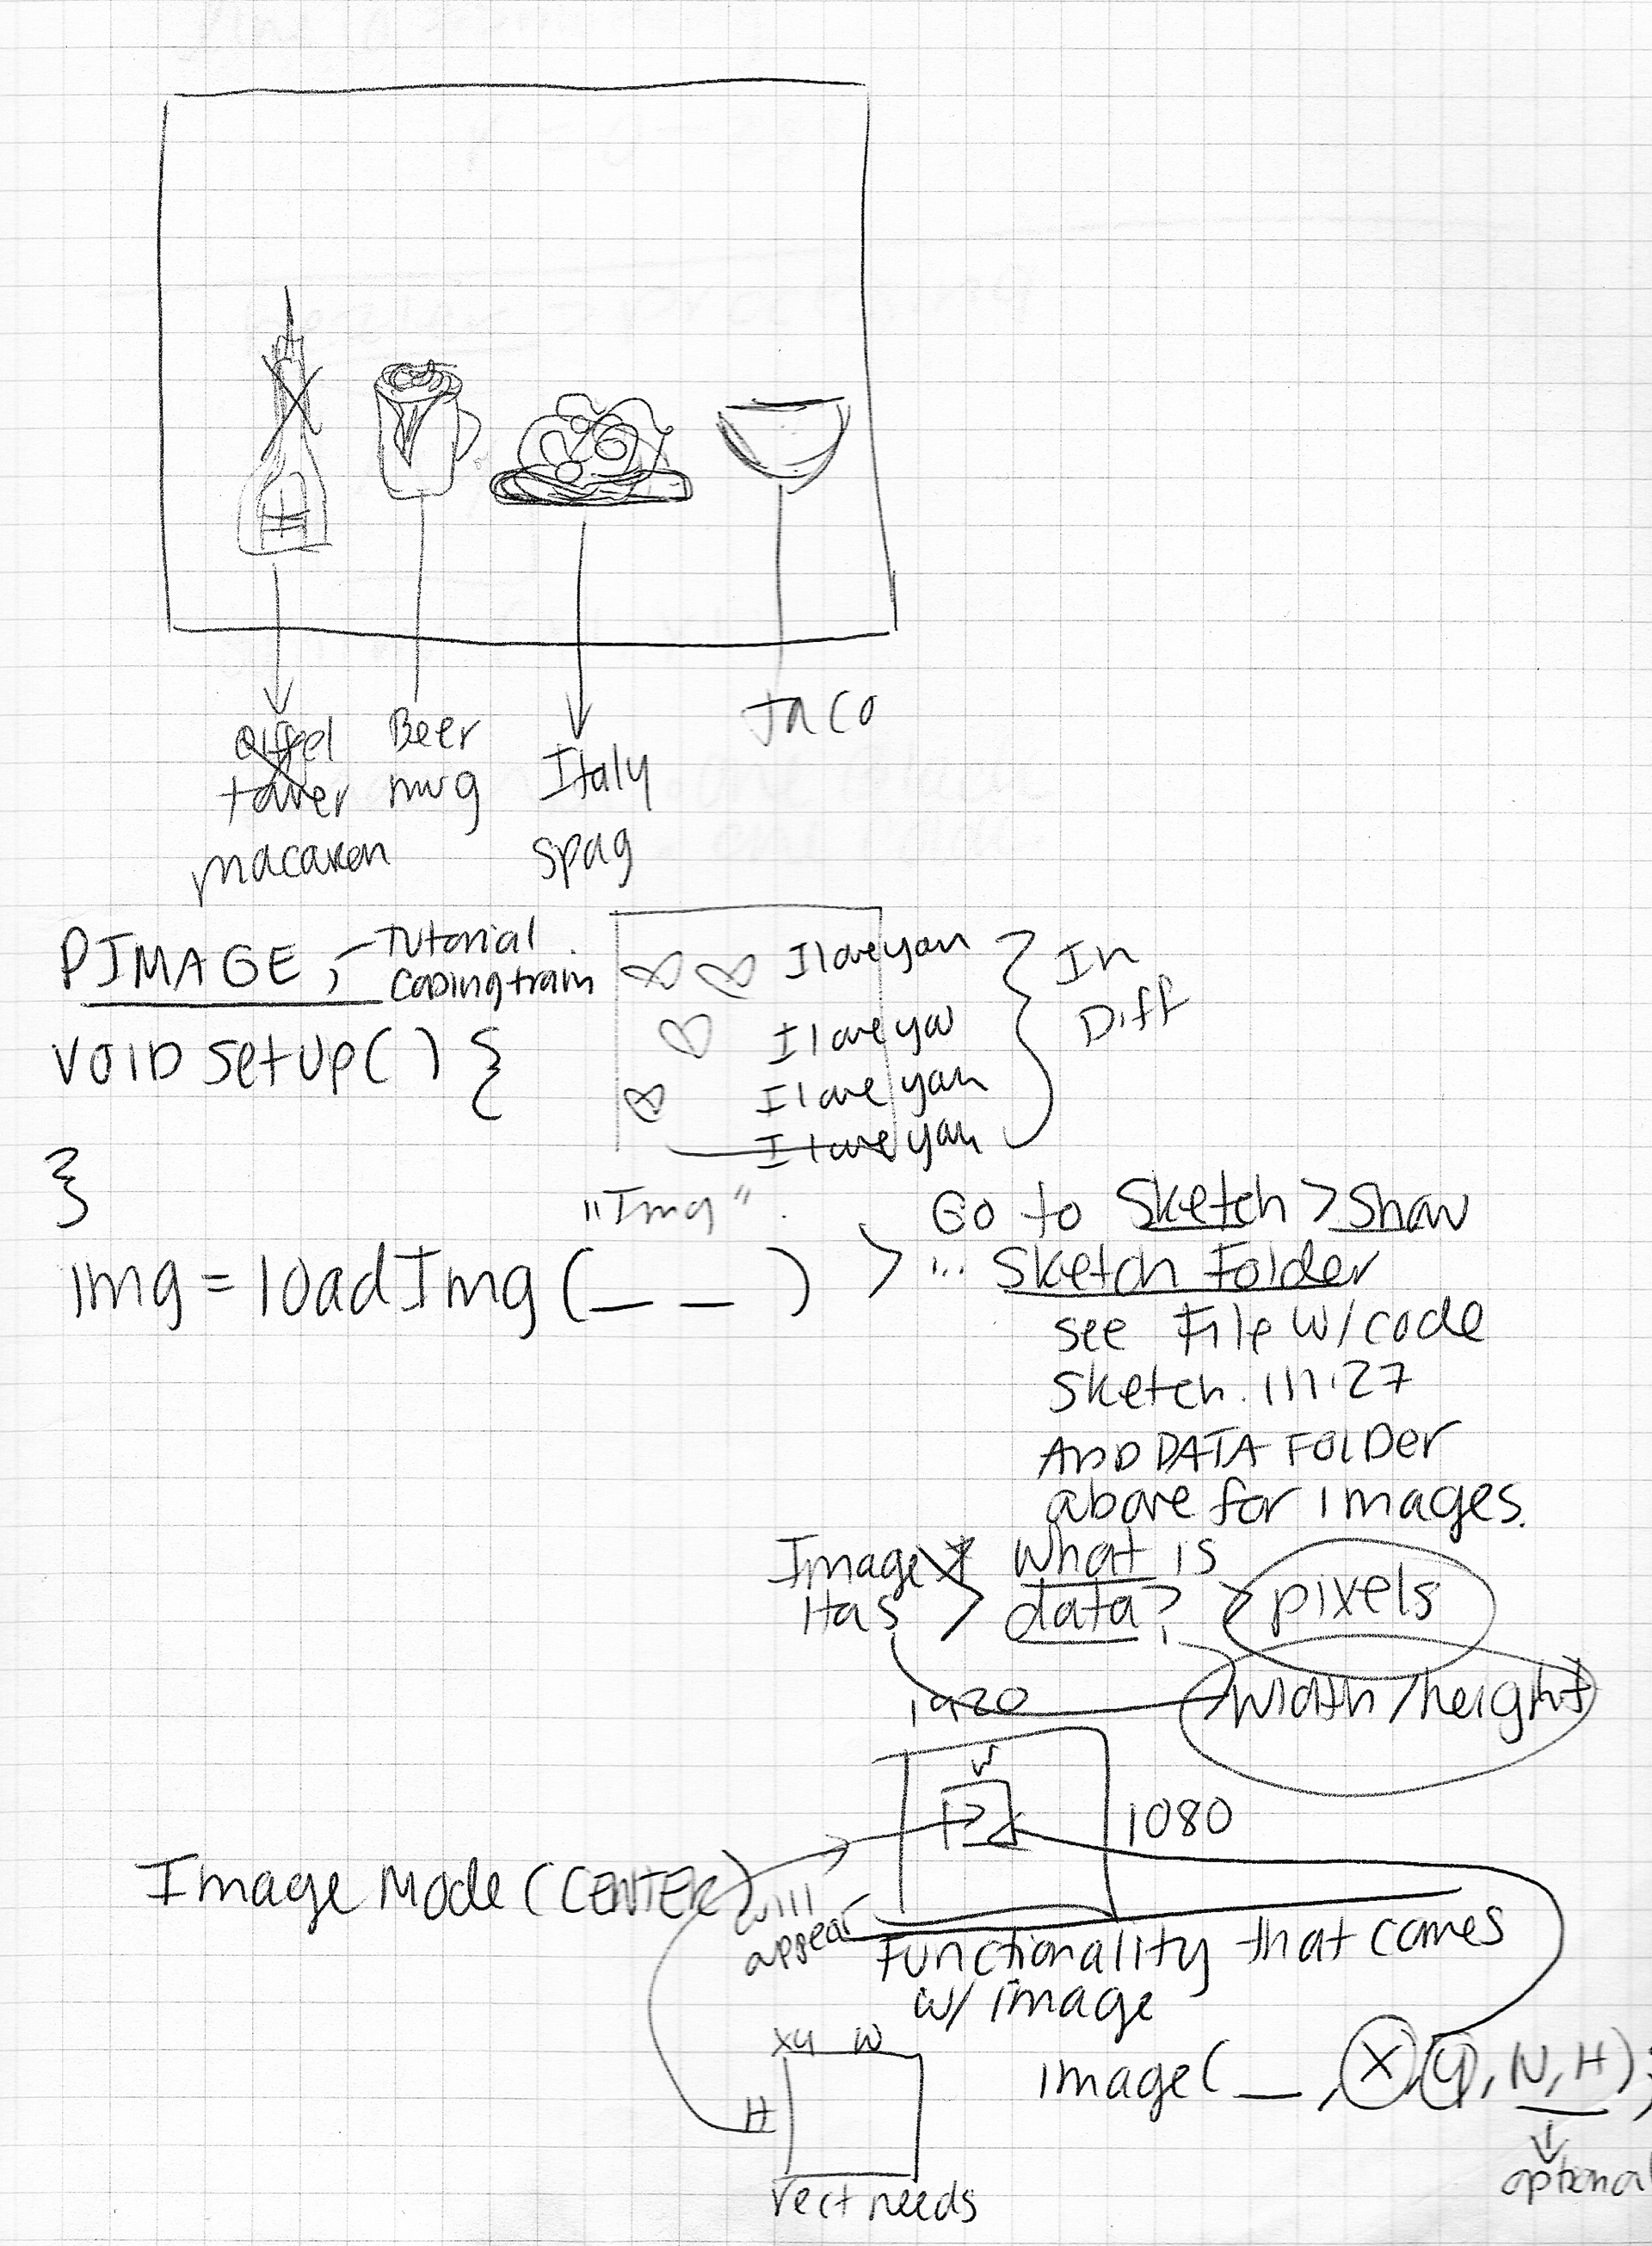 eiffel
tower
macaron
Beer
mug
Italy
spag
Taco
PIMAGE ;
Tutorial
Codingtrain
I love you
I love you
I love you
I love you
In
Diff
VOID setup() {
}
"Img"
img = loadImg (_ _ )
Go to Sketch > Show
... Sketch Folder
see File w/code
Sketch.111.27
AND DATA FOLDer
above for images.
Image
Has > what is
data?
pixels
width/height
1920
W
1080
Image Mode (CENTER)
will
appear
Functionality that comes
w/ image
image( _ , X, y, W, H);
optional
xy W
H
rect needs